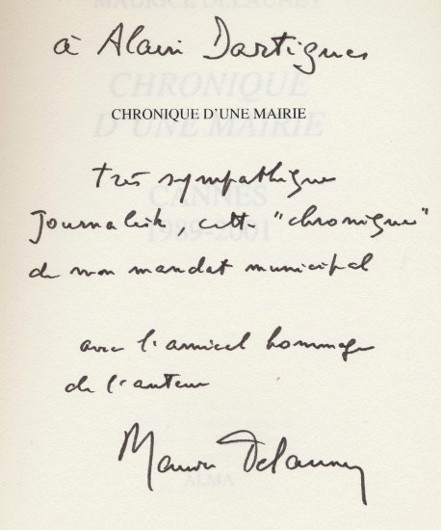 à Alain Dartigues
CHRONIQUE D'UNE MAIRIE
très sympathique
journaliste, cette "chronique"
de mon mandat municipal
avec l'amical hommage
de l'auteur
Maurice Delauney
MAURICE DELAUNEY
CHRONIQUE
D'UNE MAIRIE
CANNES
1989-2001
ALMA